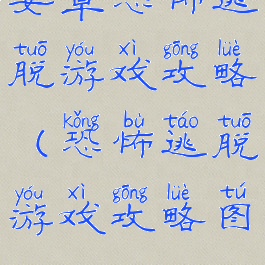 脱游戏攻略
（恐怖逃脱
游戏攻略图
tuō yóu xì gōng lüè
kǒng bù táo tuō
yóu xì gōng lüè tú